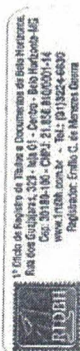 1º Ofício de Registro de Títulos e Documentos de Belo Horizonte
Rua dos Guajajaras, 329 - loja 01 - Centro - Belo Horizonte-MG
Cep: 30180-100 - CNPJ: 21.836
www.1rtdbh.com.br - Tel.: (31)3224-6630
Registrador: Emílio G. de Menezes Guerra
1RTDBH